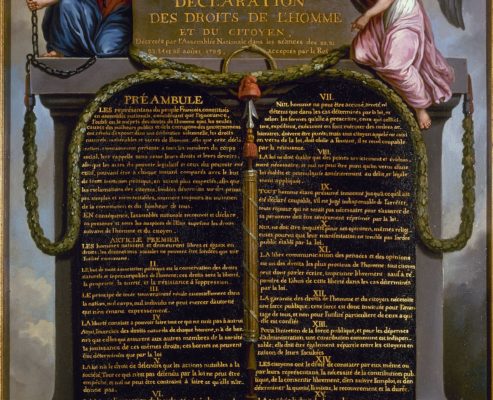 DÉCLARATION
DES DROITS DE L'HOMME
ET DU CITOYEN,
Décretés par l'Assemblée Nationale dans les séances des 20, 21
23, 24 et 26 août 1789, acceptés par le Roi
PRÉAMBULE
LES représentans du peuple François, constitués
en assemblée nationale, considérant que l'ignorance,
l'oubli ou le mépris des droits de l'homme sont les seules
causes des malheurs publics et de la corruption des gouvernemens
ont résolu d'exposer dans une déclaration solemnelle, les droits
naturels, inaliénables et sacrés de l'homme; afin que cette décla-
ration, constamment présente à tous les membres du corps
social, leur rappelle sans cesse leurs droits et leurs devoirs;
afin que les actes du pouvoir législatif et ceux du pouvoir exé-
cutif, pouvant être à chaque instant comparés avec le but
de toute institution politique, en soient plus respectés; afin que
les réclamations des citoyens, fondées désormais sur des prin-
cipes simples et incontestables, tournent toujours au maintien
de la constitution et du bonheur de tous.
EN conséquence, l'assemblée nationale reconnoit et déclare
en présence et sous les auspices de l'Etre suprême les droits
suivans de l'homme et du citoyen.
ARTICLE PREMIER
LES hommes naissent et demeurent libres et égaux en
droits; les distinctions sociales ne peuvent être fondées que sur
l'utilité commune.
II.
LE but de toute association politique est la conservation des droits
naturels et imprescriptibles de l'homme; ces droits sont la liberté,
la propriété, la sureté, et la résistance à l'oppression.
III
LE principe de toute souveraineté réside essentiellement dans la
nation, nul corps, nul individu ne peut exercer d'autorité
qui n'en émane expressément.
IV
LA liberté consiste à pouvoir faire tout ce qui ne nuit pas à autrui
Ainsi, l'exercice des droits naturels de chaque homme, n'a de bor-
nes que celles qui assurent aux autres membres de la société
la jouissance de ces mêmes droits; ces bornes ne peuvent
être déterminées que par la loi
V.
LA loi n'a le droit de défendre que les actions nuisibles à la
société. Tout ce qui n'est pas défendu par la loi ne peut être
empêché, et nul ne peut être contraint à faire ce qu'elle n'or-
donne pas.
VI.
VII.
NUL homme ne peut être accusé, arrêté ni
détenu que dans les cas déterminés par la loi, et
selon les formes qu'elle a prescrites, ceux qui sollici-
tent, expédient, exécutent ou font exécuter des ordres ar-
bitraires, doivent être punis; mais tout citoyen appelé ou saisi
en vertu de la loi, doit obéir à l'instant, il se rend coupable
par la résistance.
VIII.
LA loi ne doit établir que des peines strictement et évidem-
ment nécessaires, et nul ne peut être puni qu'en vertu d'une
loi établie et promulguée antérieurement au délit, et légale-
ment appliquée.
IX.
TOUT homme étant présumé innocent jusqu'à ce qu'il ait
été déclaré coupable, s'il est jugé indispensable de l'arrêter,
toute rigueur qui ne seroit pas nécessaire pour s'assurer de
sa personne doit être sévèrement réprimée par la loi.
X.
NUL ne doit être inquiété pour ses opinions, mêmes religi-
euses pourvu que leur manifestation ne trouble pas l'ordre
public établi par la loi.
XI.
LA libre communication des pensées et des opinions
est un des droits les plus précieux de l'homme; tout citoyen
peut donc parler, écrire, imprimer librement, sauf à ré-
pondre de l'abus de cette liberté dans les cas déterminés
par la loi.
XII.
LA garantie des droits de l'homme et du citoyen nécessite
une force publique; cette force est donc instituée pour l'avan-
tage de tous, et non pour l'utilité particulière de ceux à qui
elle est confiée.
XIII.
POUR l'entretien de la force publique, et pour les dépenses
d'administration, une contribution commune est indispen-
sable; elle doit être également répartie entre les citoyens en
raison de leurs facultées.
XIV.
LES citoyens ont le droit de constater par eux même ou
par leurs représentans, la nécessité de la contribution pub-
lique, de la consentir librement, d'en suivre l'emploi, et d'en
déterminer la quotité, l'assiette, le recouvrement et la durée.
XV.